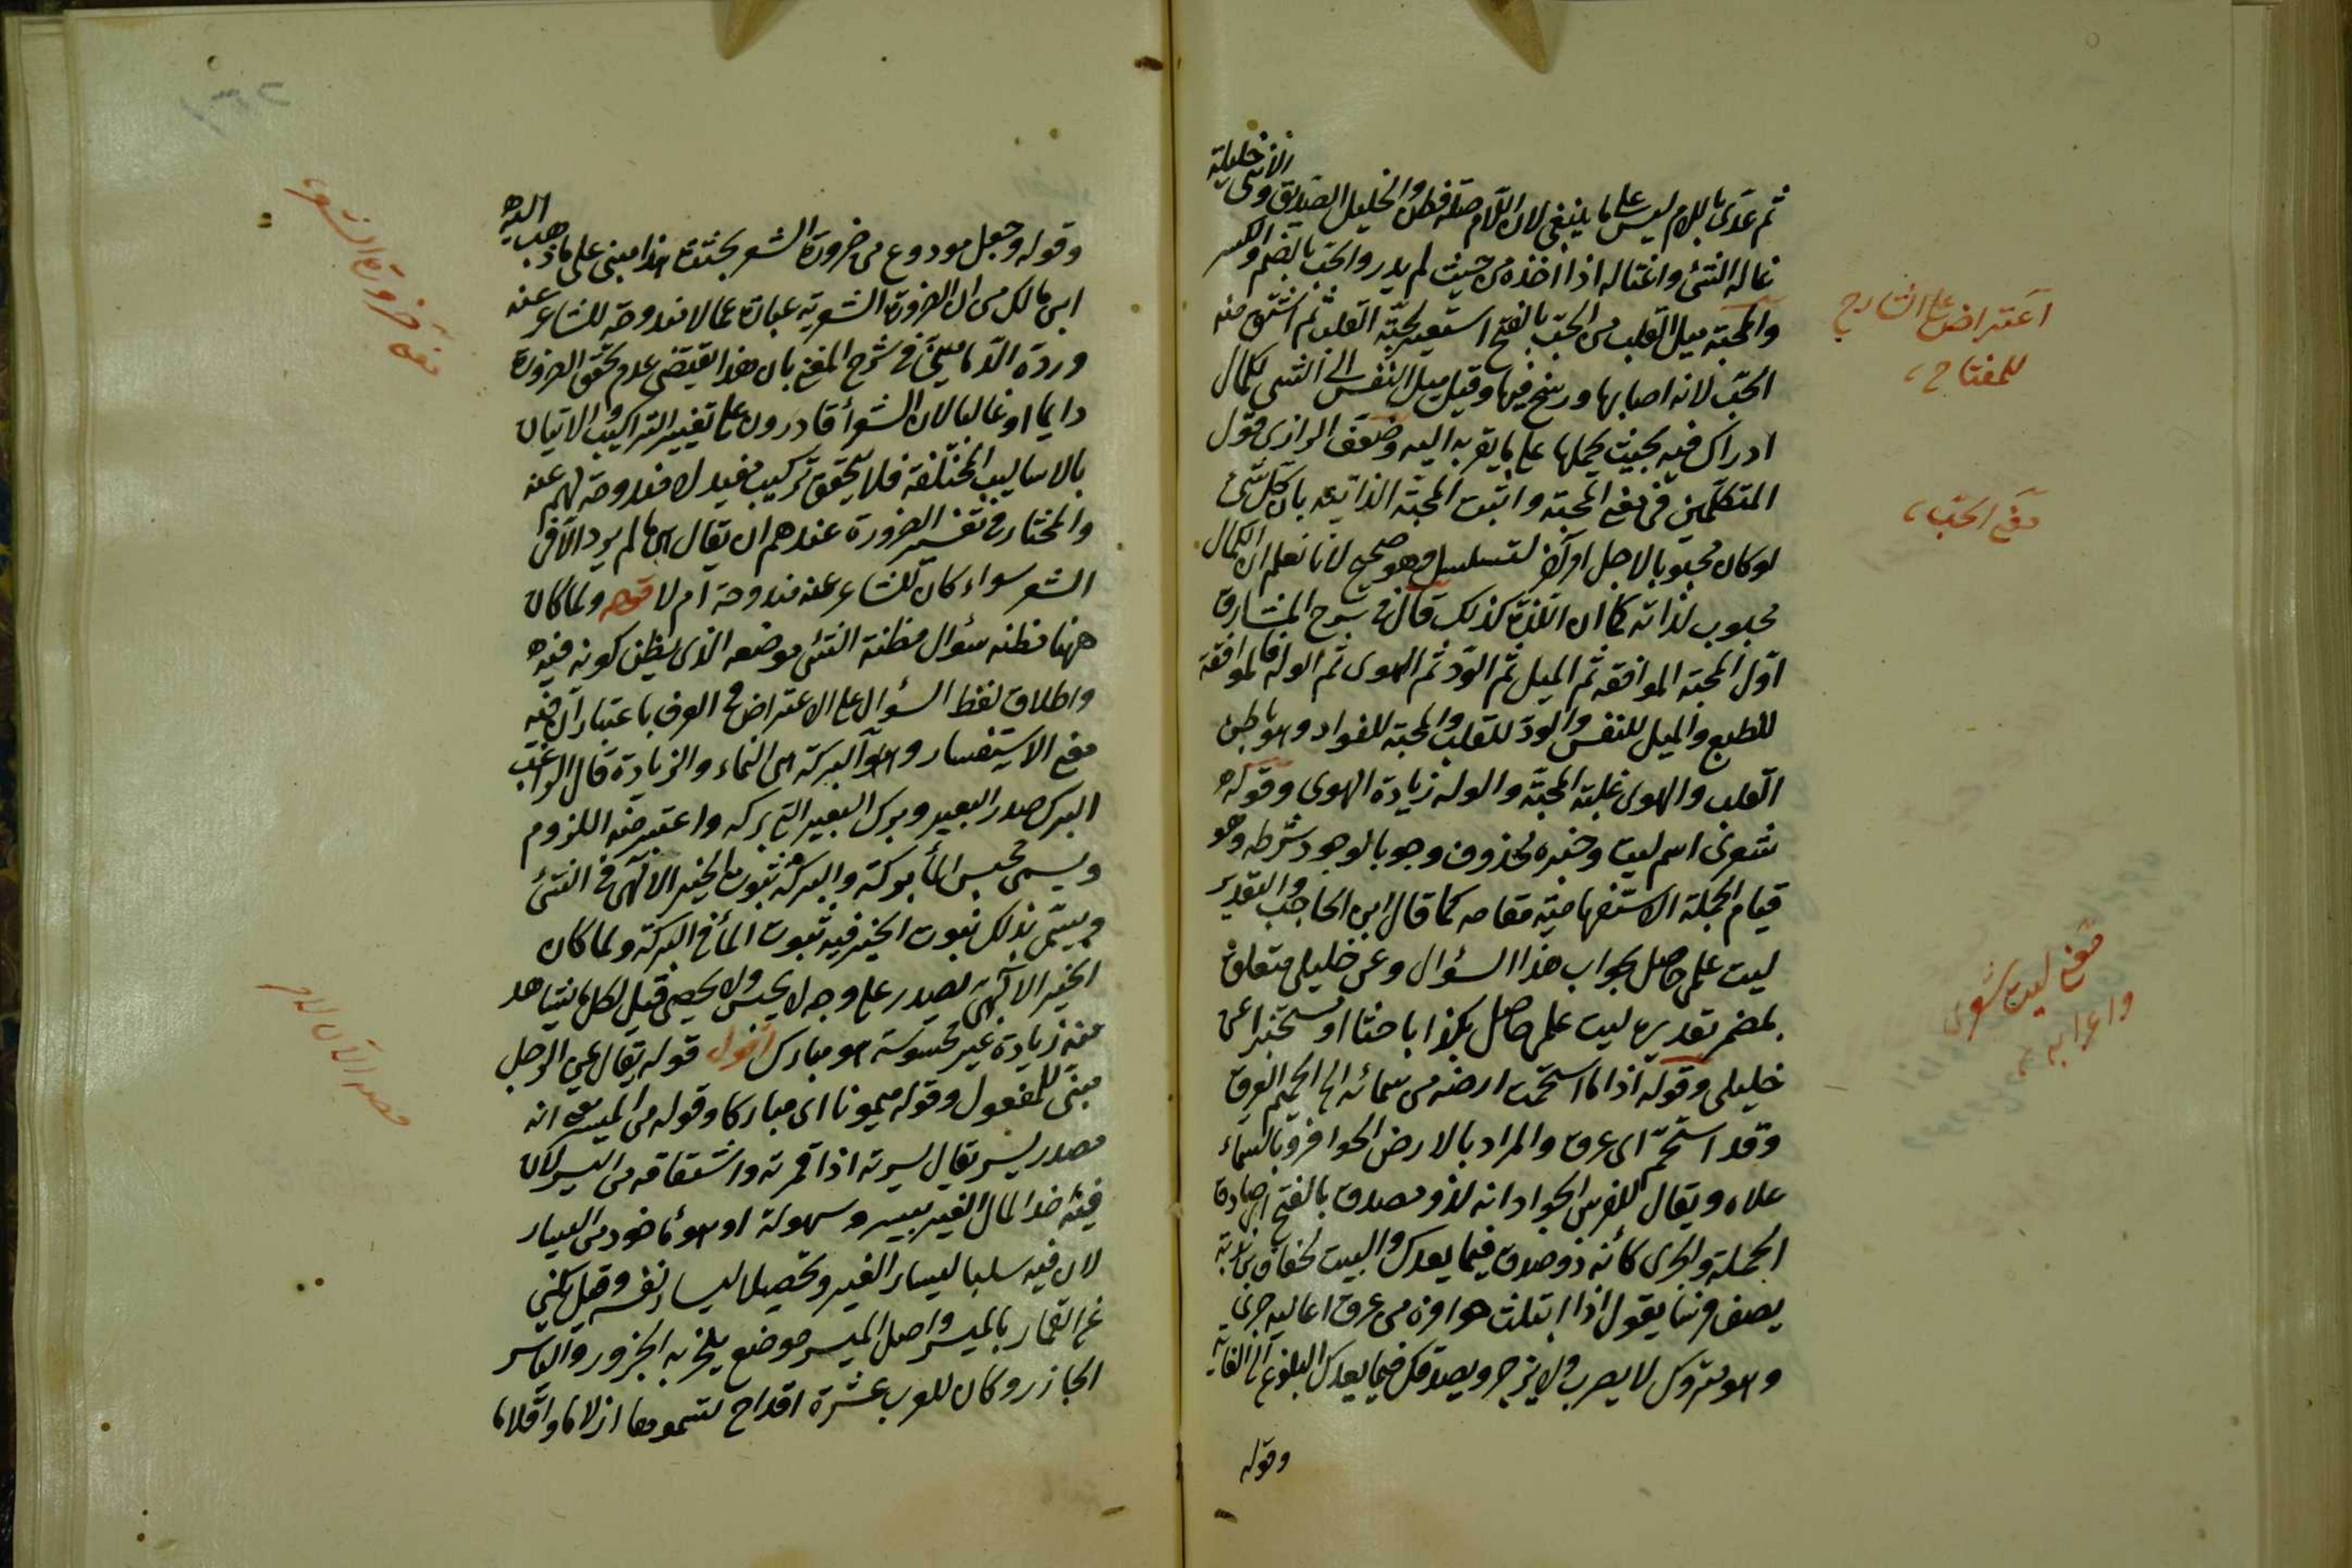 ثم عدى باللام ليس على ما ينبغى لان اللام صلة فطن والخليل الصديق والانثى خليلة
غاله الشئ واغتاله اذا اخذه من حيث لم يدر والحب بالضم والكسر
والمحبة ميل القلب من الحب بالفتح استعير لحبة القلب ثم اشتق منه
الحب لانه اصابها ورسخ فيها وقيل ميل النفس الى الشئ لكمال
ادراك فيه بحيث يحملها على ما يقربه اليه وضعف الرازى قول
المتكلمين فى نفى المحبة واثبت المحبة الذاتية بان كل شئ
لو كان محبوبا لاجل اخر لتسلسل وهو صحيح لانا نعلم ان الكمال
محبوب لذاته كما ان اللذة كذلك قال فى شرح المشارق
اول المحبة الموافقة ثم الميل ثم الود ثم الهوى ثم الوله فالموافقة
للطبع والميل للنفس والود للقلب والمحبة للفواد وهو باطن
القلب والهوى غلبة المحبة والوله زيادة الهوى وقوله
شعرى اسم ليت وخبره محذوف وجوبا لوجود شرطه وهو
قيام الجملة الاستفهامية مقامه كما قال ابن الحاجب والتقدير
ليت علمى حاصل بجواب هذا السؤال وعن خليلى متعلق
بمضمر تقديره ليت علمى حاصل بكذا باحثا او مستخبرا عن
خليلى وقوله اذا ما استحمت ارضه من سمائه الخ الحميم العرق
وقد استحم اى عرق والمراد بالارض الحوافر وبالسماء
علاه ويقال للفرس الجواد انه لذو مصدق بالفتح اى صادق
الحملة والجرى كأنه ذو صدق فيما يعدك والبيت لخفاف بن ندبة
يصف فرسا يقول اذا ابتلت حوافره من عرق اعاليه جرى
وهو متروك لا يضرب ولا يزجر ويصدقك فيما يعدك البلوغ الى الغاية
وقوله
اعتراض على الشارح
للمفتاح
معنى الحب
معنى ليت شعرى
واعرابه
وقوله وجعل مودوع من ضرورة الشعر بحث هذا مبنى على ما ذهب اليه
ابن مالك من ان الضرورة الشعرية عبارة عما لا مندوحة للشاعر عنه
ورده الدمامينى فى شرح المغنى بان هذا يقتضى عدم تحقق الضرورة
دايما او غالبا لان الشعراء قادرون على تغيير التراكيب والاتيان
بالاساليب المختلفة فلا يتحقق تركيب مفيد لا مندوحة لهم عنه
والمختار فى تفسير الضرورة عندهم ان يقال هى ما لم يرد الا فى
الشعر سواء كان للشاعر عنه مندوحة ام لا قوله ولما كان
ههنا مظنة سؤال مظنة الشئ موضعه الذى يظن كونه فيه
واطلاق لفظ السؤال على الاعتراض فى العرف باعتبار ان فيه
معنى الاستفسار وهو البركة هى النماء والزيادة قال الراغب
البرك صدر البعير وبرك البعير القى بركه واعتبر منه اللزوم
ويسمى محبس الماء بركة والبركة ثبوت الخير الالهى فى الشئ
ويسمى بذلك ثبوت الخير فيه ثبوت الماء فى البركة ولما كان
الخير الالهى يصدر على وجه لا يحس ولا يحصى قيل لكل ما يشاهد
منه زيادة غير محسوسة هو مبارك اقول قوله يقال عى الرجل
مبنى للمفعول وقوله ميمونا اى مباركا وقوله من الميسر انه
مصدر يسر يقال يسرته اذا قمرته واشتقاقه من اليسر لان
فيه اخذ المال الغير بيسر وسهولة او هو مأخوذ من اليسار
لان فيه سلبا ليسار الغير وتحصيلا ليسار نفسه وقيل كنى
عن القمار بالميسر واصل الميسر موضع ينحر به الجزور والياسر
الجازر وكان للعرب عشرة اقداح تسمونها ازلاما واقلاما
معنى ضرورة الشعر